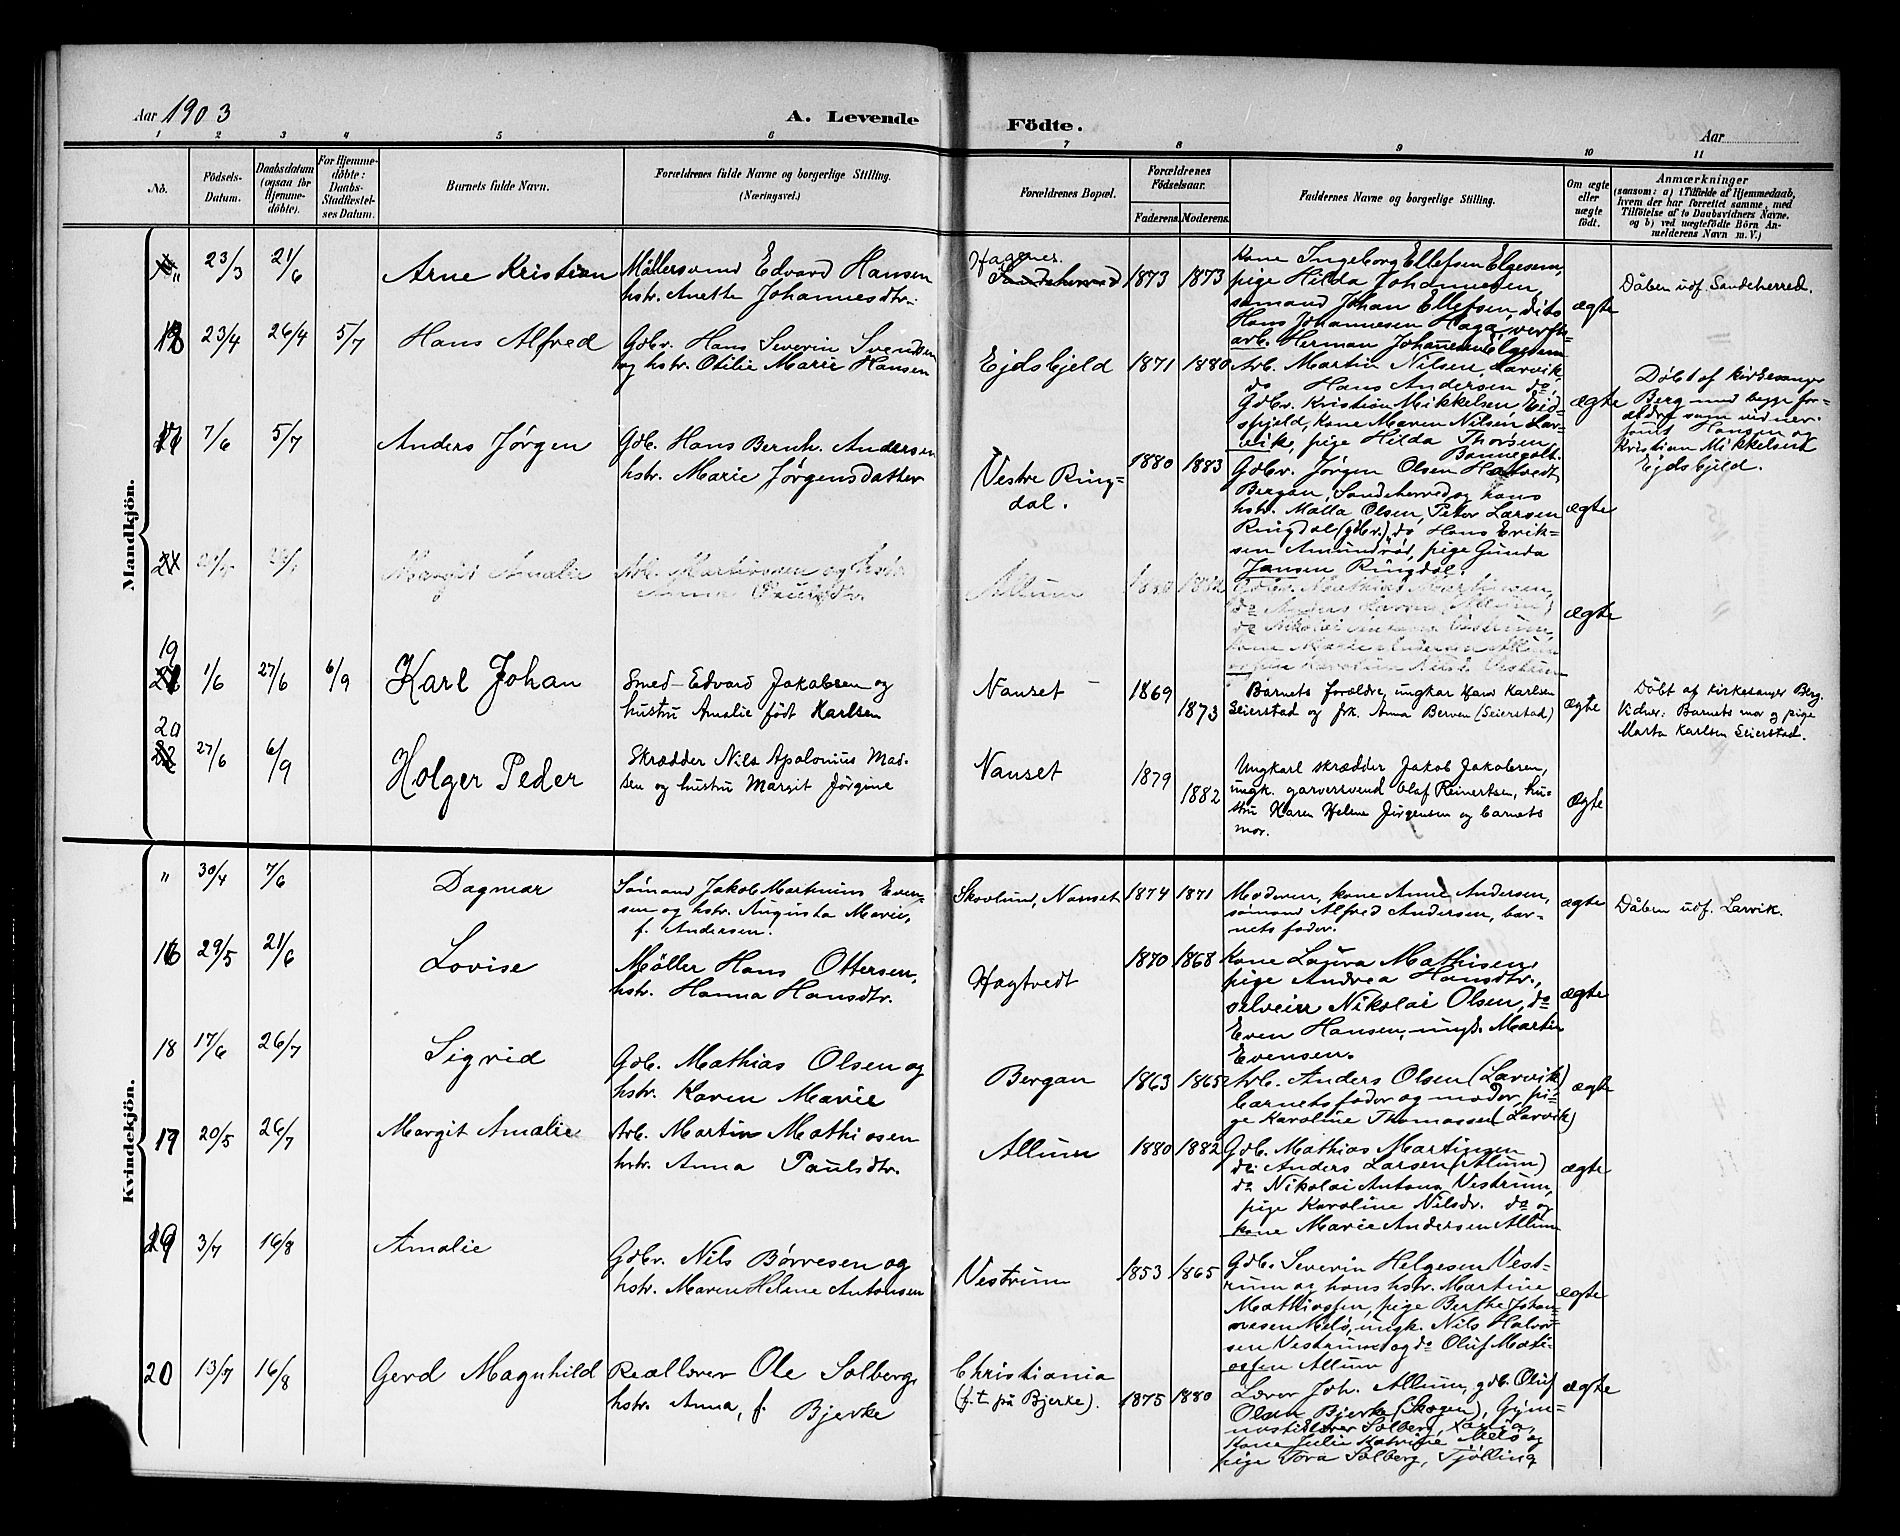 Aar 1903
A. Levende
Födte.
Aar
1 2 3 4 5 6 7 8 9 10 11
No.
Födsels-
Datum.
Daabsdatum
(ogsaa for
Hjemme-
döbte).
For Hjemme-
döbte:
Daabs-
Stadfæstel-
ses Datum.
Barnets fulde Navn.
Forældrenes fulde Navne og borgerlige Stilling.
(Næringsvei.)
Forældrenes Bopæl.
Forældrenes
Födselsaar.
Faderens. Moderens.
Faddernes Navne og borgerlige Stilling.
Om ægte
eller
uægte
födt.
Anmærkninger
(saasom: a) i Tilfælde af Hjemmedaab,
hvem der har forrettet samme, med
Tilföielse af to Daabsvidners Navne.
og b) ved uægtefödte Börn An-
melderens Navn m. V.)
Mandkjön.
" 23/3 21/6 Arne Kristian
Møllersvend Edvard Hansen
hstr. Anette Johannesdtr.
Hagnes
Sandeherred
1873 1873
Kone Ingeborg Ellefsen Elgesem,
pige Hilda Johannesen
sømand Johan Ellefsen, dits
Hans Johannesen Haga, verfts-
arb. Herman Johannesen Elgesem
ægte
Dåben udf. Sandeherred.
18 23/4 26/4 5/7 Hans Alfred
Gdbr. Hans Severin Svendsen
og hstr. Otilie Marie Hansen
Ejdsfjeld
1871 1880
Arb. Martin Nilsen, Larvik,
do Hans Andersen do,
Gdbr. Kristian Mikkelsen, Eid-
sfjeld, Kone Maren Nilsen Lar-
vik, pige Hilda Thorsen,
Bonnegolt.
ægte
Døbt af kirkesanger
Berg med begge for-
ældre som vidner
samt Hansen og
Kristian Mikkelsen
Ejdsfjeld.
17 7/6 5/7 Anders Jørgen
Gdb. Hans Bernh. Andersen
hstr. Marie Jørgensdatter
Vestre Ring-
dal.
1880 1883
Gdbr. Jørgen Olsen Halvedt
Bergan, Sandeherred og hans
hstr. Malla Olsen, Peter Larsen
Ringdal (gdbr), do Hans Erik-
sen Amundrød, pige Gunda
Jansen Ringdal.
ægte
21 Margit Amalie
Allum
1880 1882
Gdbr. Mathias Martinsen,
do Anders Larsen (Allum)
do Nikolai Antons. Vestrum,
Kone Marie Andersen Allum
og pige Karoline Nilsd. Vestrum
ægte
19
1/6 27/6 6/9 Karl Johan
Smed Edvard Jakobsen og
hustru Amalie født Karlsen
Nanset
1869
1873
Barnets forældre, ungkar Hans Karlsen
Seierstad og frk. Anna Berven (Seierstad)
ægte
Døbt af kirkesanger Berg.
Vidner: Barnets mor og pige
Marta Karlsen Seierstad.
20
22 27/6 6/9 Holger Peder
Skrædder Nils Apolonius Mad-
sen og hustru Margit Jørgine
Nanset
1879
1882
Ungkarl skrædder Jakob Jakobsen,
ungk. garversvend Olaf Reinertsen, hu-
stru Karen Helene Jørgensen og barnets
mor.
ægte
Kvindekjön.
" 30/4 7/6 Dagmar
Sömand Jakob Martinius Even-
sen og hstr. Augusta Marie,
f. Andersen.
Skovlund, Nanset
1874 1871
Moderen, kone Anne Andersen,
sømand Alfred Andersen, bar-
nets fader.
ægte
Dåben udf. Larvik.
16 29/5 21/6 Lovise
Møller Hans Ottersen,
hstr. Hanna Hansdtr.
Hagtvedt
1870 1868
Kone Laura Mathisen,
pige Andrea Hansdtr.,
selveier Nikolai Olsen, do
Even Hansen, ungk. Martin
Evensen.
ægte
18 17/6 26/7 Sigrid
Gdb. Mathias Olsen og
hstr. Karen Marie
Bergan
1863 1865
Arb. Anders Olsen (Larvik)
barnets fader og moder, pi-
ge Karoline Thomassen (Larvik)
ægte
17 20/5 26/7 Margit Amalie
Arb. Martin Mathisen
hstr. Anna Paulsdtr.
Allum
1880 1882
Gdb. Mathias Martinsen
do: Anders Larsen (Allum)
do Nikolai Antons. Vestrum,
pige Karoline Nilsdr. do og
kone Marie Andersen Allum
ægte
19 3/7 16/8 Amalie
Gdbr. Nils Børresen og
hstr. Maren Helene Antonsen
Vestrum
1853 1865
Gdb. Severin Helgesen Vest-
rum og hans hstr. Martine
Mathiassen, pige Berthe Johan-
nesen Melø, ungk. Nils Halvor-
sen Vestrum og do Oluf Mathi-
assen Allum
ægte
20 13/7 16/8 Gerd Magnhild
Reallærer Ole Solberg,
hstr. Anna, f. Bjerke
Christiania
(f.t. på Bjerke).
1875 1880
Lærer Joh. Allum, gdb. Oluf
Olsen Bjerke (Skogen), Gym-
nastiklærer Solberg, Xania,
Kone Julie Katrine Melø og
pige Tora Solberg, Tjølling
ægte